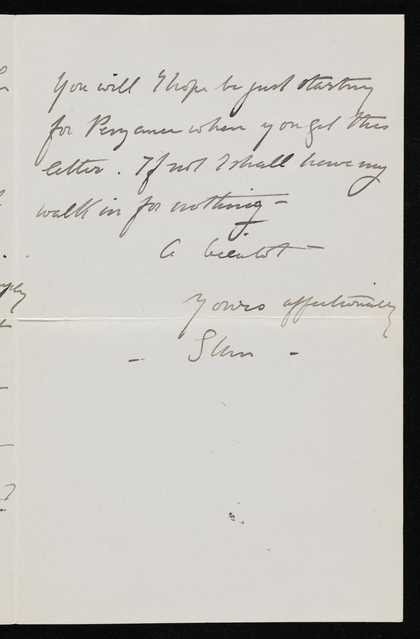 You will I hope be just starting
for when you get this
letter. If not I shall have my
walk in for nothing –
A bientôt –
Yours affectionately